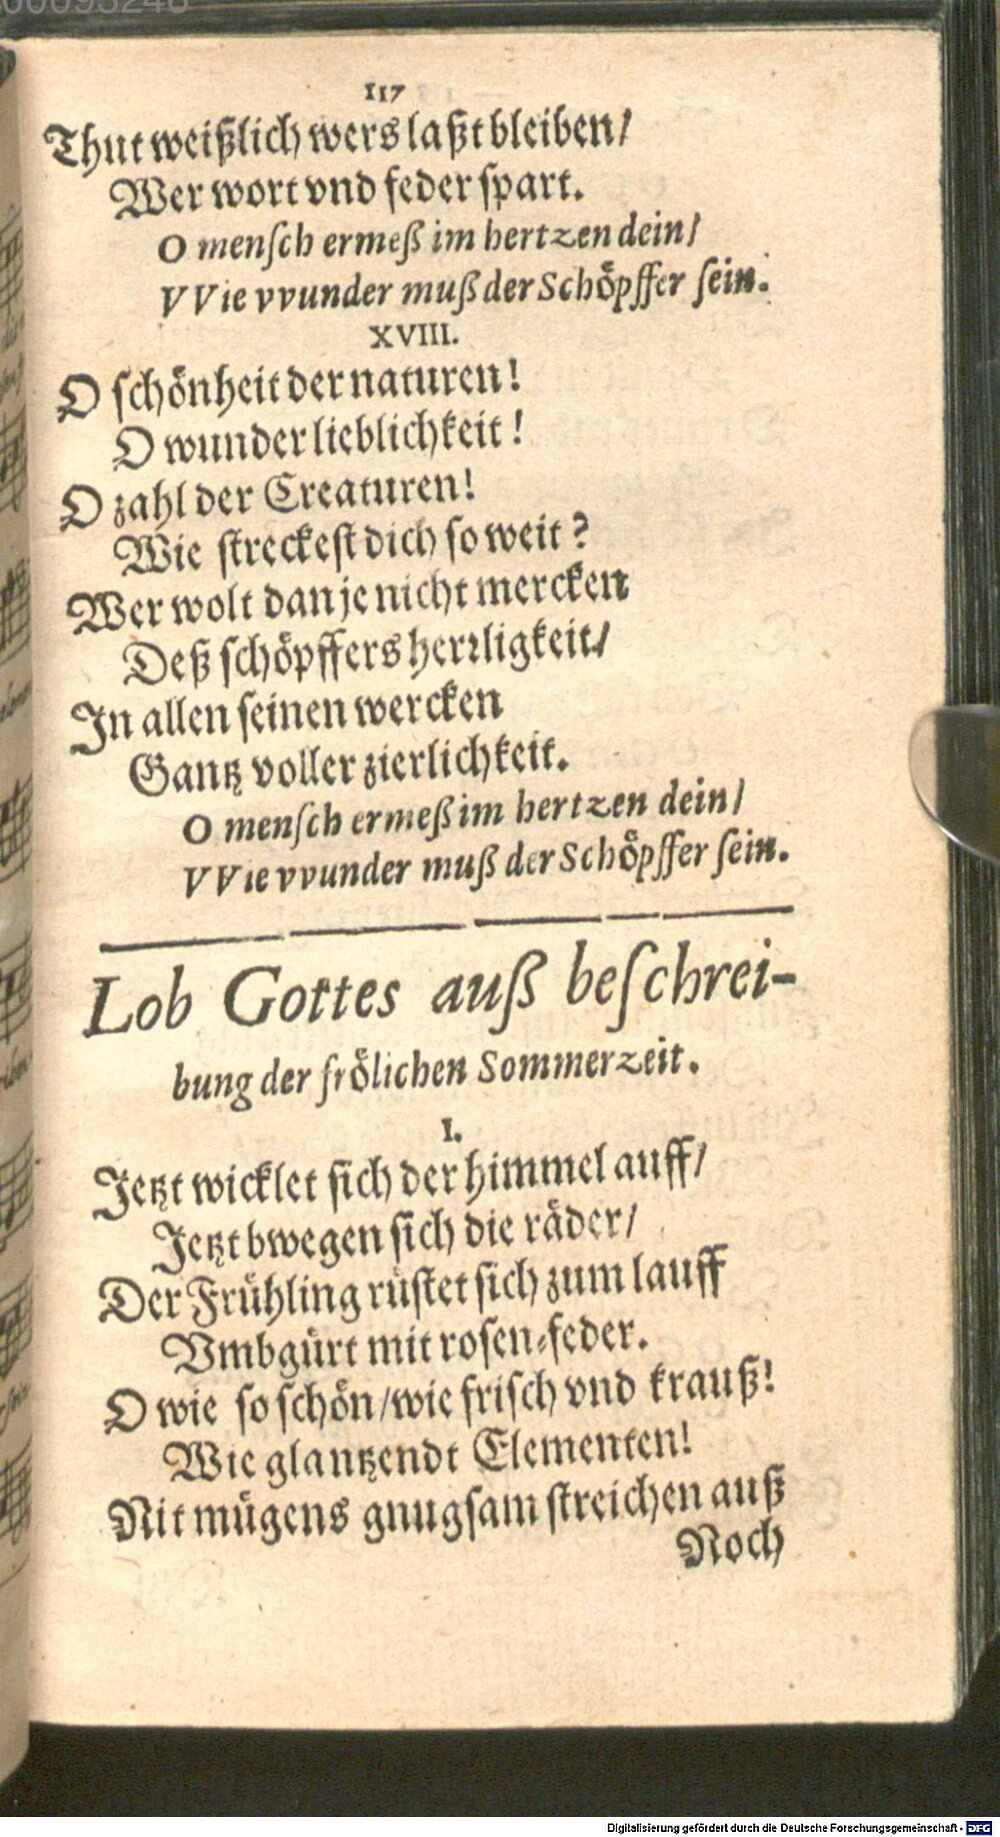 00093248
117
Thut weißlich wers laßt bleiben/
Wer wort vnd feder spart.
O menſch ermeß im hertzen dein/
VVie vvunder muß der Schöpffer ſein.
XVIII.
O schönheit der naturen!
O wunder lieblichkeit!
O zahl der Creaturen!
Wie streckest dich so weit?
Wer wolt dan je nicht mercken
Deß schöpffers herꝛligkeit/
In allen seinen wercken
Gantz voller zierlichkeit.
O menſch ermeß im hertzen dein/
VVie vvunder muß der Schöpffer ſein.
Lob Gottes auß beſchrei-
bung der frölichen Sommerzeit.
I.
Jetzt wicklet sich der himmel auff/
Jetzt bwegen sich die räder/
Der Frühling rüstet sich zum lauff
Vmbgürt mit rosen-feder.
O wie so schön/wie frisch vnd krauß!
Wie glantzendt Elementen!
Nit mügens gnugsam streichen auß
Noch
Digitalisierung gefördert durch die Deutsche Forschungsgemeinschaft - DFG